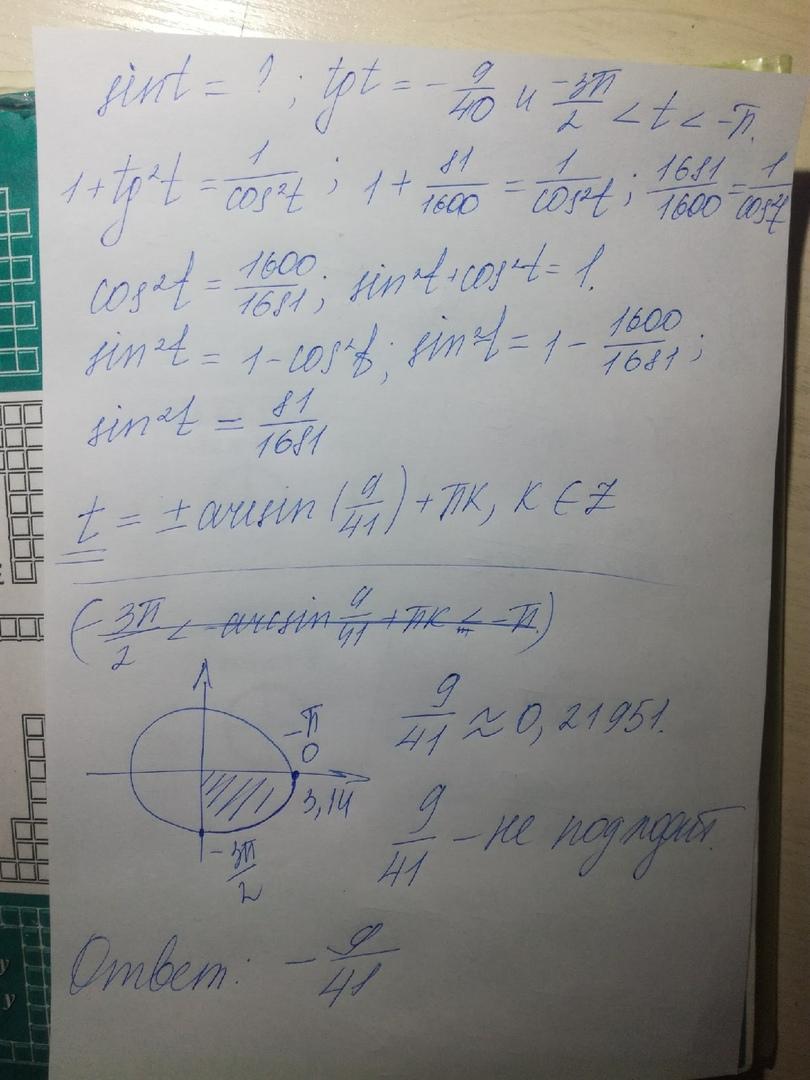 sint = ? ; tgt = -9/40 и -3π/2 < t < -π.
1+tg²t = 1/cos²t ; 1 + 81/1600 = 1/cos²t ; 1681/1600 = 1/cos²t
cos²t = 1600/1681 ; sin²t+cos²t = 1.
sin²t = 1-cos²t ; sin²t = 1 - 1600/1681 ;
sin²t = 81/1681
t = ± arcsin (9/41) + πk, k ∈ Z
(-3π/2 < -arcsin 9/41 + πk < -π)
-π
0
3,14
-3π/2
9/41 ≈ 0,21951.
9/41 - не подходит.
Ответ: -9/41